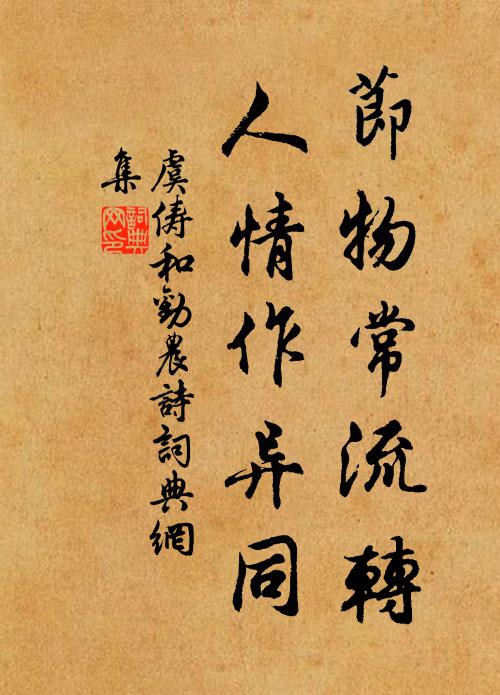 節物常流轉
人情作异同
虞俦和勸農詩詞典網
集
詞典网印